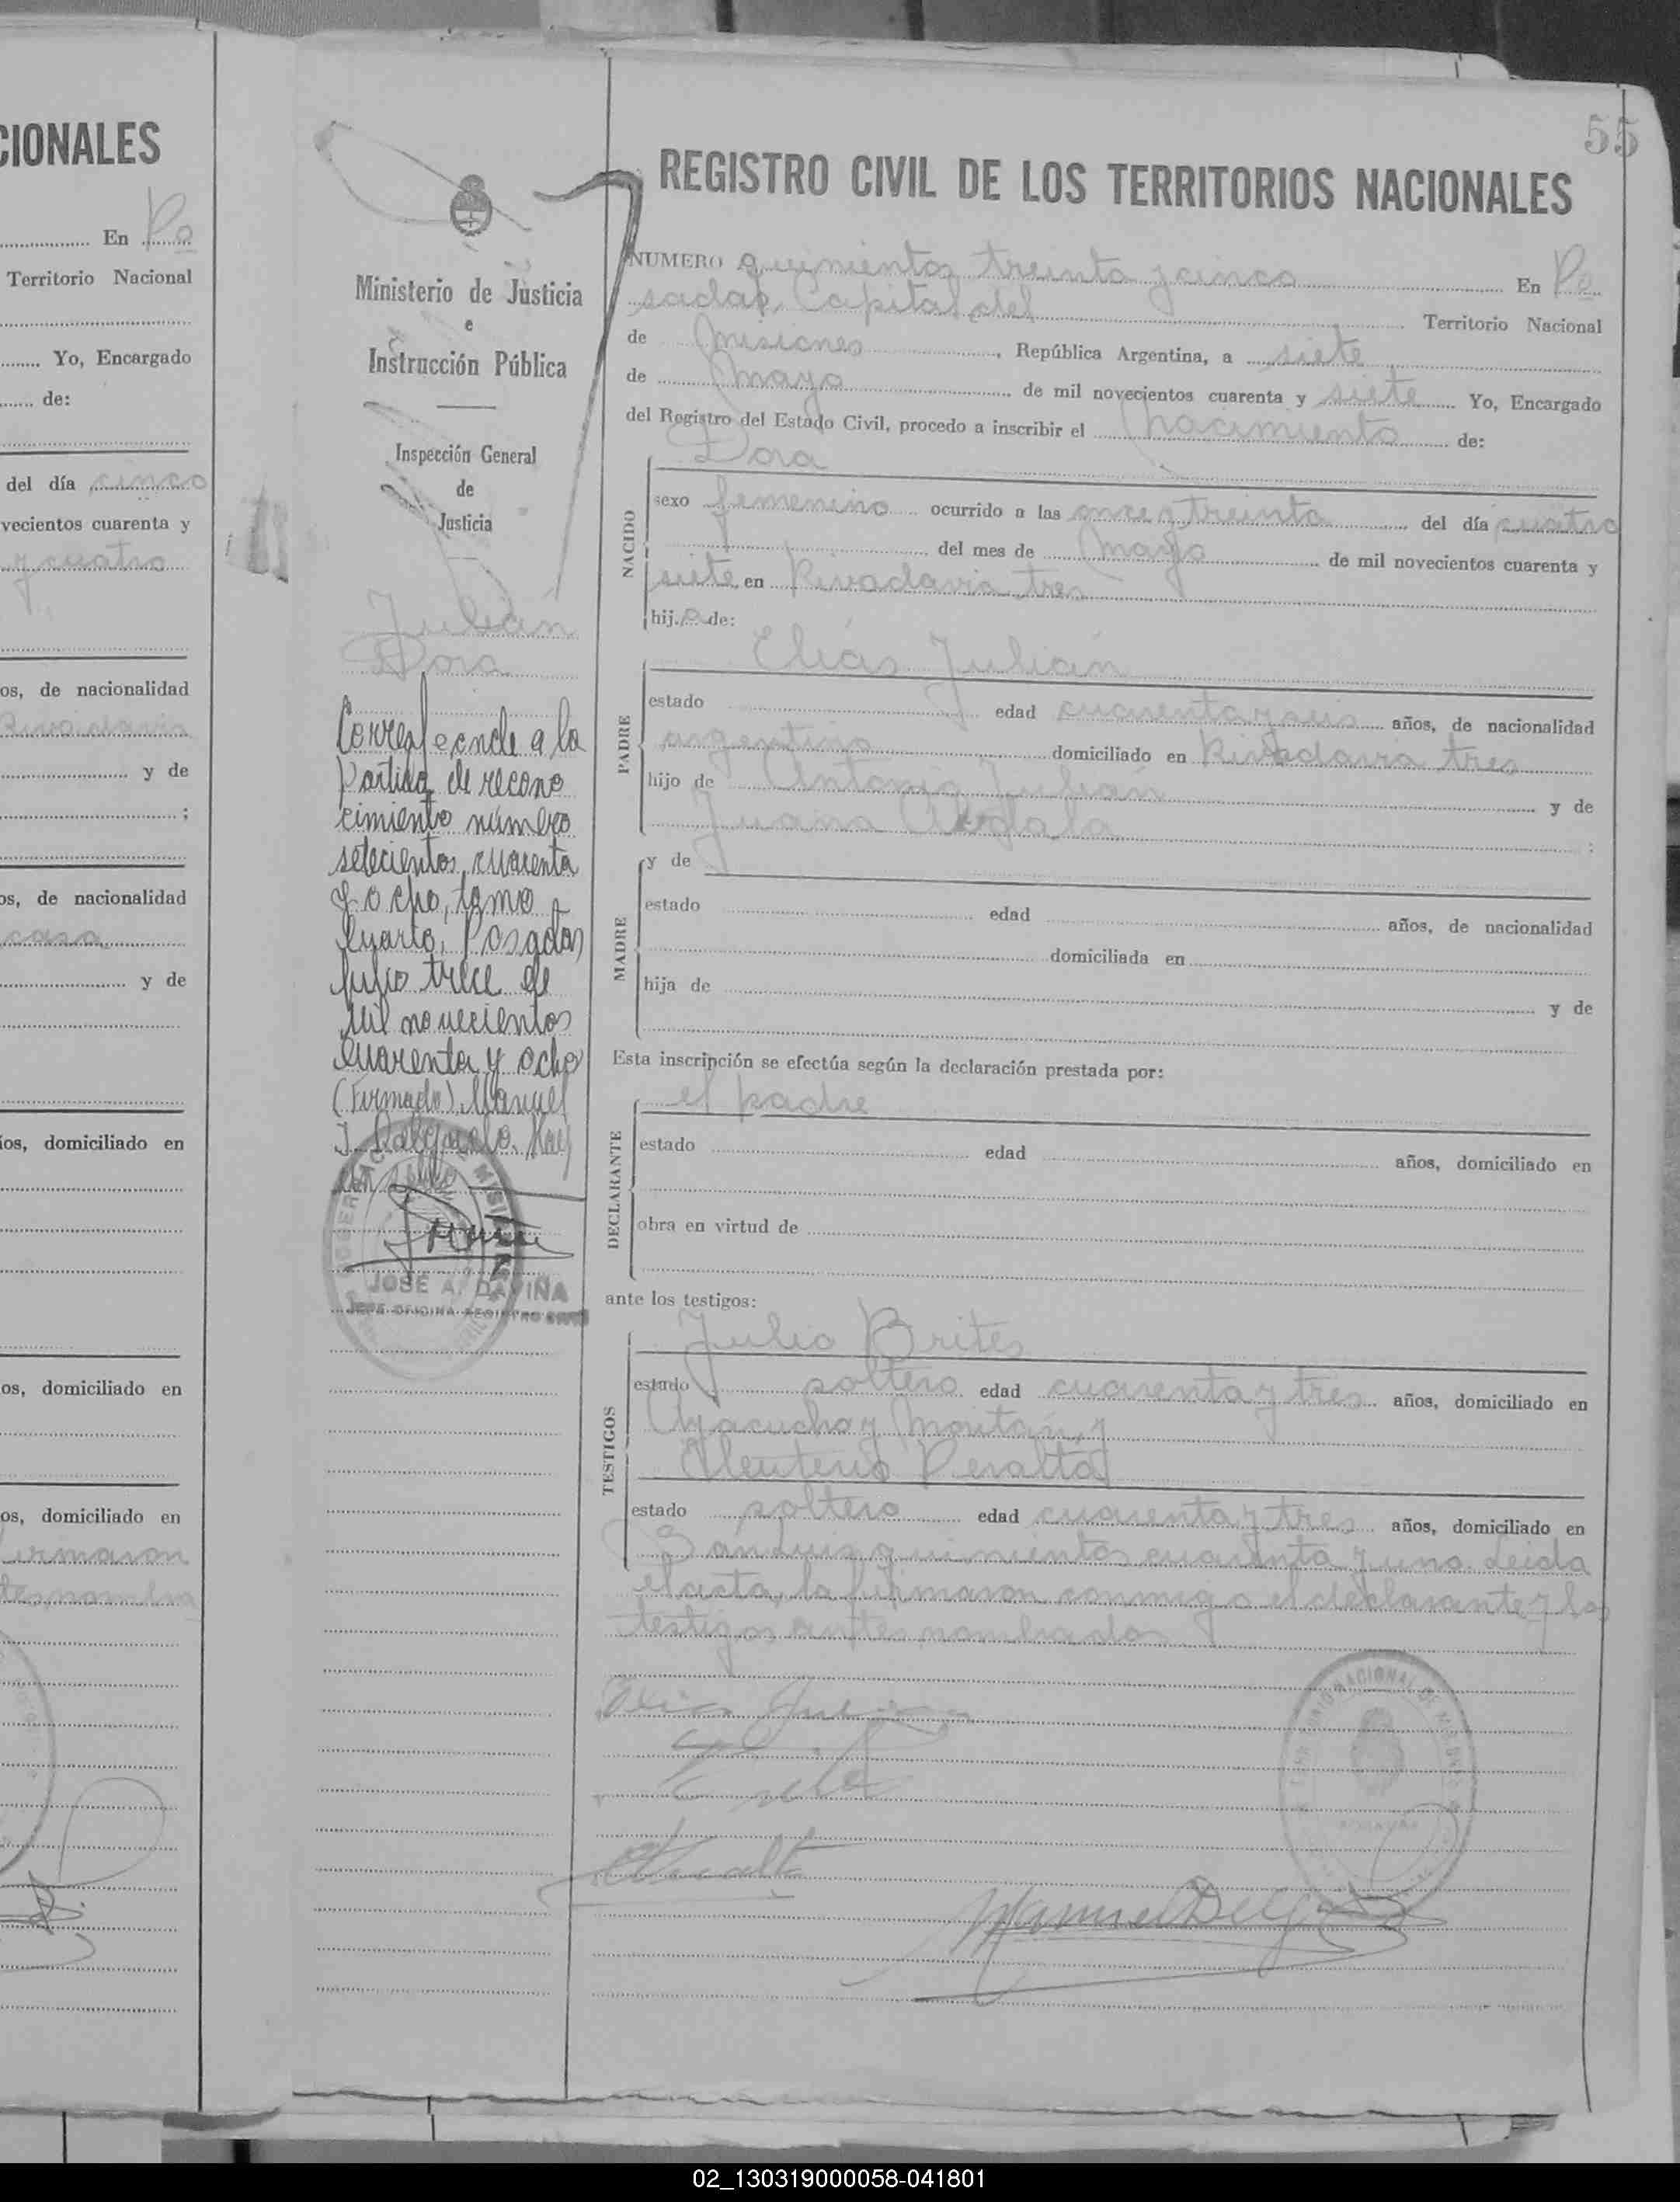 CIONALES
En Po
Territorio Nacional
Yo, Encargado
de:
del día cinco
vecientos cuarenta y
y cuatro
os, de nacionalidad
Rivadavia
y de
;
os, de nacionalidad
casa
y de
ios, domiciliado en
os, domiciliado en
os, domiciliado en
firmaron
tes nombra
55
Ministerio de Justicia
e
Instrucción Pública
Inspección General
de
Justicia
Julián
Dora
Corresponde a la
Partida de recono
cimiento número
setecientos cuarenta
y ocho, tomo
cuarto, Posadas
julio trece de
mil novecientos
cuarenta y ocho
(Firmado) Manuel
JOSÉ A. DAVIÑA
JEFE OFICINA REGISTRO CIVIL
REGISTRO CIVIL DE LOS TERRITORIOS NACIONALES
NUMERO quinientos treinta y cinco En Po
sadas, Capital del Territorio Nacional
de Misiones, República Argentina, a siete
de Mayo de mil novecientos cuarenta y siete Yo, Encargado
del Registro del Estado Civil, procedo a inscribir el nacimiento de:
Dora
NACIDO
sexo femenino ocurrido a las once y treinta del día cuatro
del mes de Mayo de mil novecientos cuarenta y
siete en Rivadavia tres
hij.a de:
Elías Julián
PADRE
estado edad cuarenta y seis años, de nacionalidad
argentino domiciliado en Rivadavia tres
hijo de Antonio Julián y de
Juana Abdala ;
y de
MADRE
estado edad años, de nacionalidad
domiciliada en
hija de y de
Esta inscripción se efectúa según la declaración prestada por:
el padre
DECLARANTE
estado edad años, domiciliado en
obra en virtud de
ante los testigos:
Julio Brites
TESTIGOS
estado soltero edad cuarenta y tres años, domiciliado en
Ayacucho y Moritán, y
Eleuterio Peralta
estado soltero edad cuarenta y tres años, domiciliado en
San Luis quinientos cuarenta y uno. Leida
el acta, la firmaron conmigo el declarante y los
testigos antes nombrados
Elias Julian
02_130319000058-041801